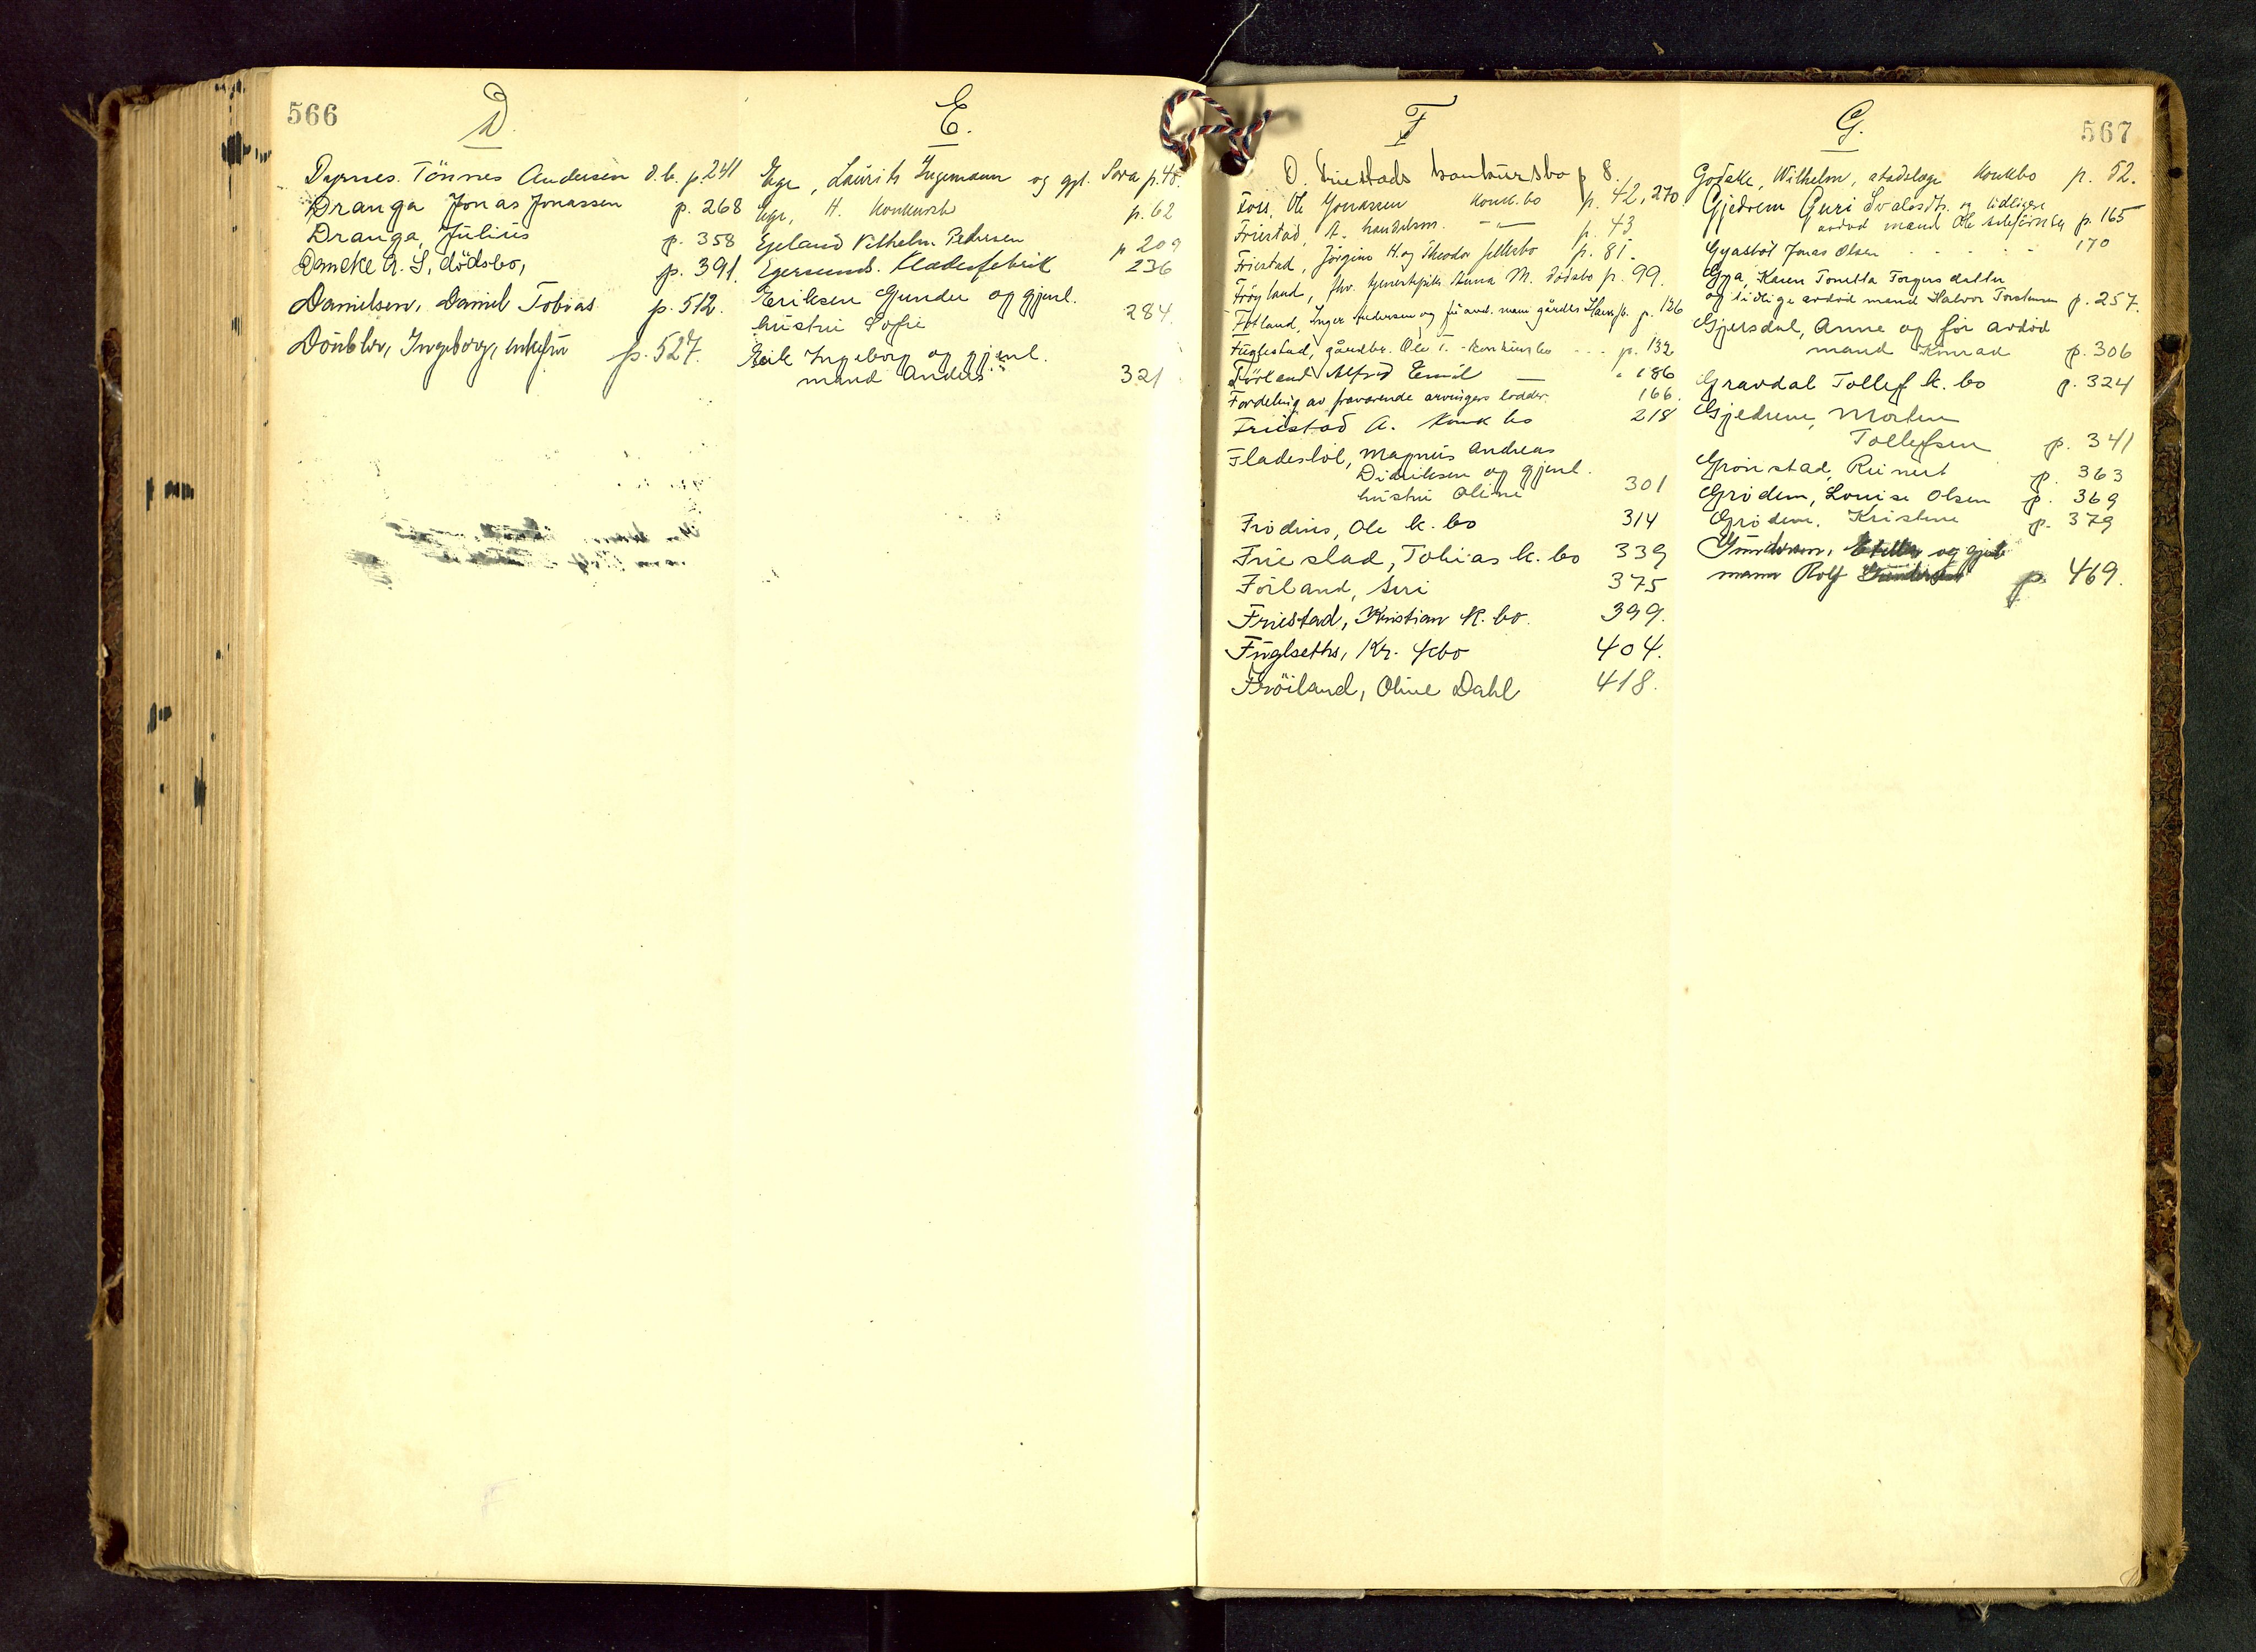 566
D.
Dyrnes. Tönnes Andersen d.b. p. 241
Dranga Jonas Jonassen p. 268
Dranga, Julius p. 358
Dancke A. S, dödsbo, p. 391.
Danielsen, Daniel Tobias p. 512.
Ingeborg, enkefru p. 527.
E.
Ege, Laurits Ingemann og gjl. Sara p. 48.
Ege, H. Konkursbo p. 62
Egeland Vilhelm Pedersen p 209
Egersunds. Klædesfabrik 236
Eriksen Gunder og gjenl.
hustru Sofie 284.
Eik Ingeborg og gjenl.
mand Anders 321
F
O. Friestads konkursbo p 8.
Foss, Ole Gunnarsen Konk.bo p. 42, 270
Friestad, A. handelsm. -"- p. 43
Friestad, Jörgine H. og Theodor fellesbo p. 81.
Fröyland, Anna M. dödsbo p. 99.
Fotland, Inger Andersen og p. 126
Fuglestad, gårdbr. Ole T. - Konkursbo - - - p. 132
Förland Alfred Emil — " 186
Fordeling av fraværende arvingers lodder. 166.
Friestad A. Konk bo 218
Fladesböl, Magnus Andreas
Didriksen og gjenl.
hustru Oline 301
Frödins, Ole k. bo 314
Friestad, Tobias k. bo 339
Förland, Siri 375
Friestad, Kristian K. bo. 399.
Fuglseths, Kr. fbo 404.
Fröiland, Oline Dahl 418.
G.
567
Godtke, Wilhelm, stadslæge Konkbo p. 52.
Gjedrem Guri Svalesdt. og tidligere
avdöd mand Ole p. 165
Gyasböl Jonas Olsen - - - - 170
Gya, Karen Tonetta Torgersdatter
og tidligere avdöd mand Halvor Torstensen p. 257.
Gjersdal, Anne og för avdöd
mand Konrad p. 306
Gravdal Tollef k. bo p. 324
Gjedrem, Morten
Tollefsen p. 341
Grönstad, Reinert p. 363
Grödem, Louise Olsen p. 369
Grödem, Kristine p. 379
Gundersen, og gjenl.
mann Rolf Gundersen p. 469.